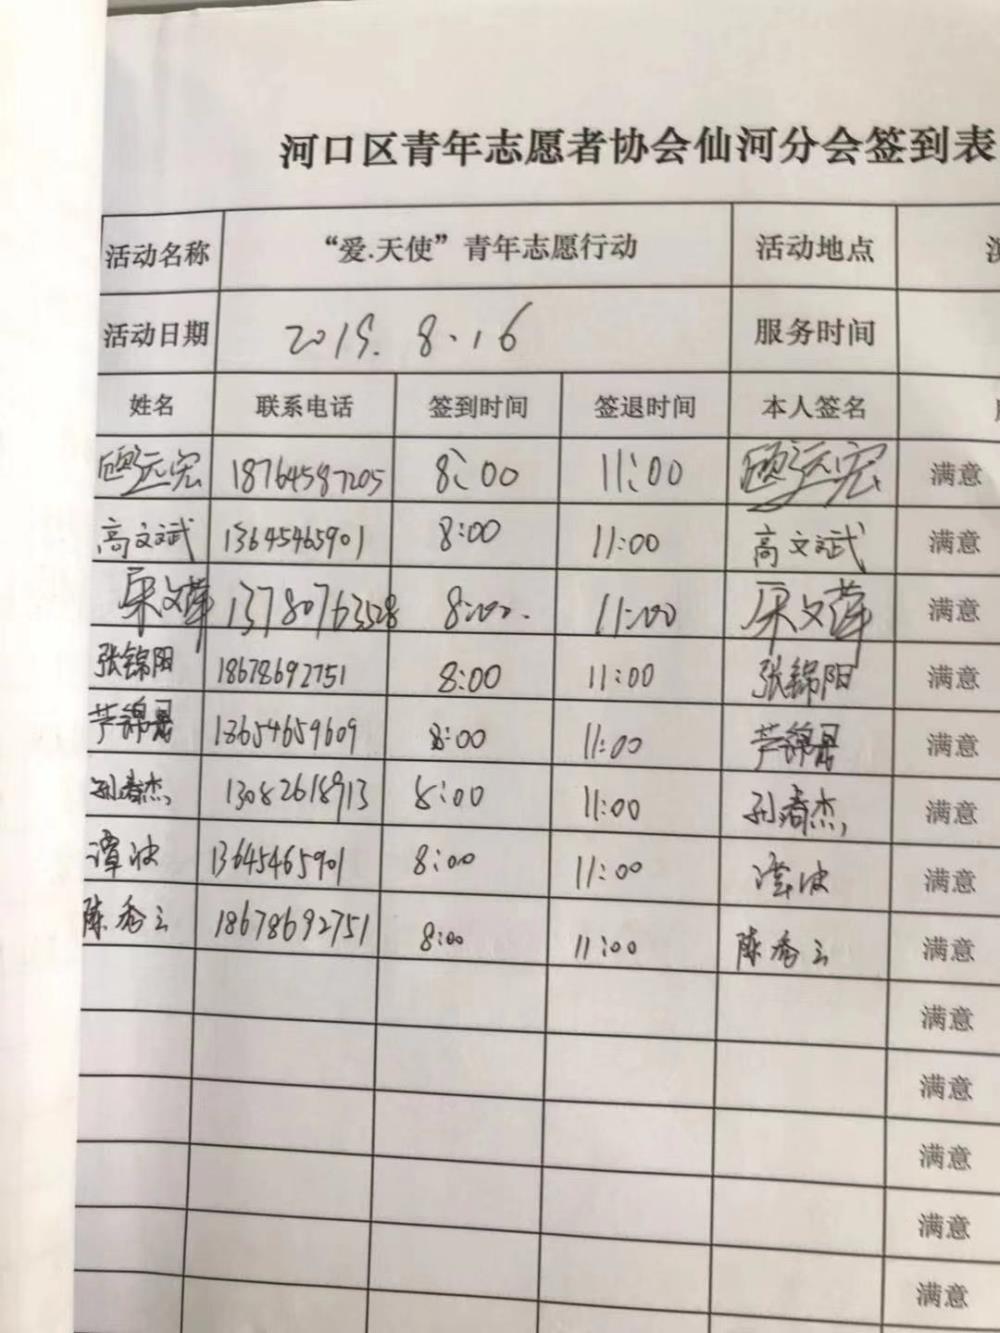 河口区青年志愿者协会仙河分会签到表
活动名称 “爱.天使”青年志愿行动 活动地点
活动日期 2019. 8.16 服务时间
姓名 联系电话 签到时间 签退时间 本人签名
18764587205 8:00 11:00 满意
高文斌 13645465901 8:00 11:00 高文斌 满意
13780763328 8:00. 11:00 满意
张锦阳 18678692751 8:00 11:00 张锦阳 满意
13654659609 8:00 11:00 满意
孙春杰 13082618913 8:00 11:00 孙春杰 满意
谭波 13645465901 8:00 11:00 谭波 满意
陈秀云 18678692751 8:00 11:00 陈秀云 满意
满意
满意
满意
满意
满意